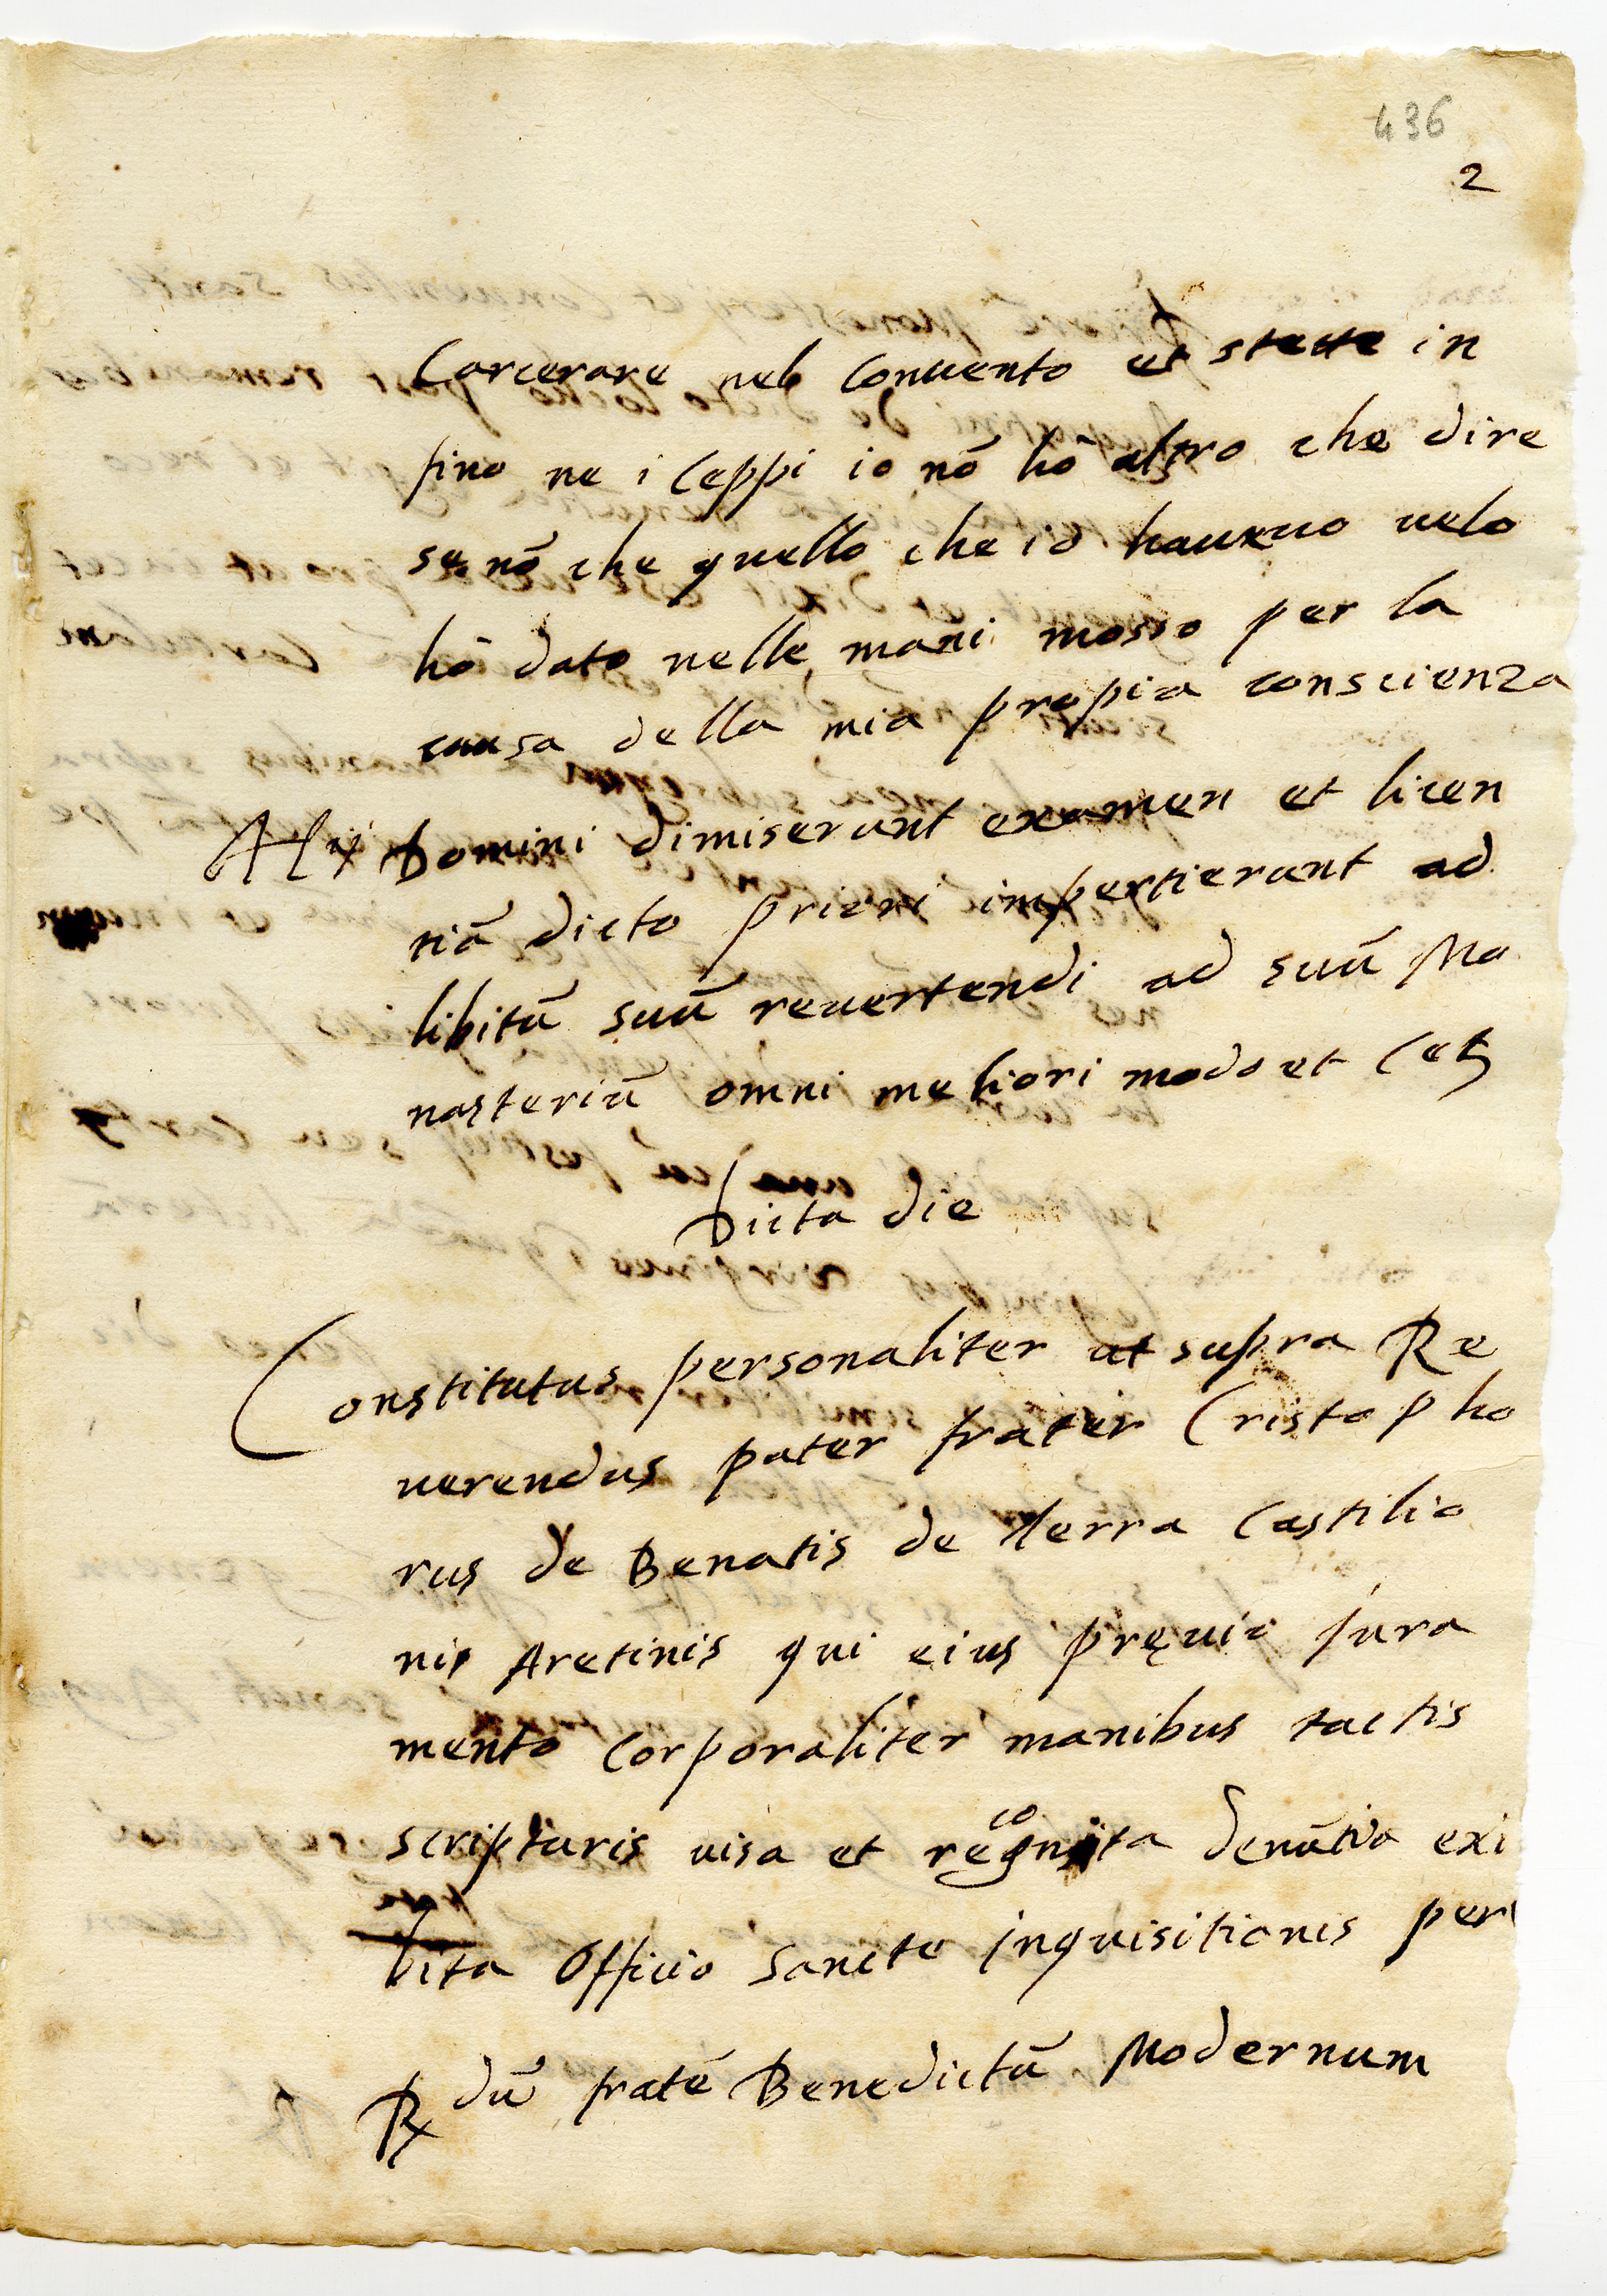 436
2
Carcerare nel Conuento et stette in
fino ne i Ceppi io nō hò altro che dire
se nō che quello che io haueuo uelo
hò dato nelle mani mosso per la
causa della mia propia conscienza
Domini dimiserunt examen et licen
tiā dicto priori impertierunt ad
libitū suū reuertendi ad suū Mo
nasteriū omni meliori modo et Cet
Dicta die
Constitutus personaliter ut supra Re
uerendus pater frater Cristopho
rus de Benatis de Terra Castilio
nis Aretinis qui eius pręuio jura
mento Corporaliter manibus tactis
scripturis uisa et recognita denūtia exi
bita Officio Sancte jnquisitionis per
Rdū fratē Benedictū Modernum